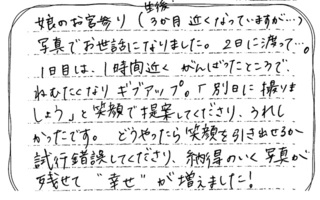 娘のお宮参り(生後3か月近くなっていますが…)
写真でお世話になりました。2日に渡って…。
1日目は、1時間近くがんばったところで、
ねむたくなりギブアップ。「別日に撮りま
しょう」と笑顔で提案してくださり、うれし
かったです。どうやったら笑顔を引き出せるか
試行錯誤してくださり、納得のいく写真が
残せて"幸せ"が増えました!